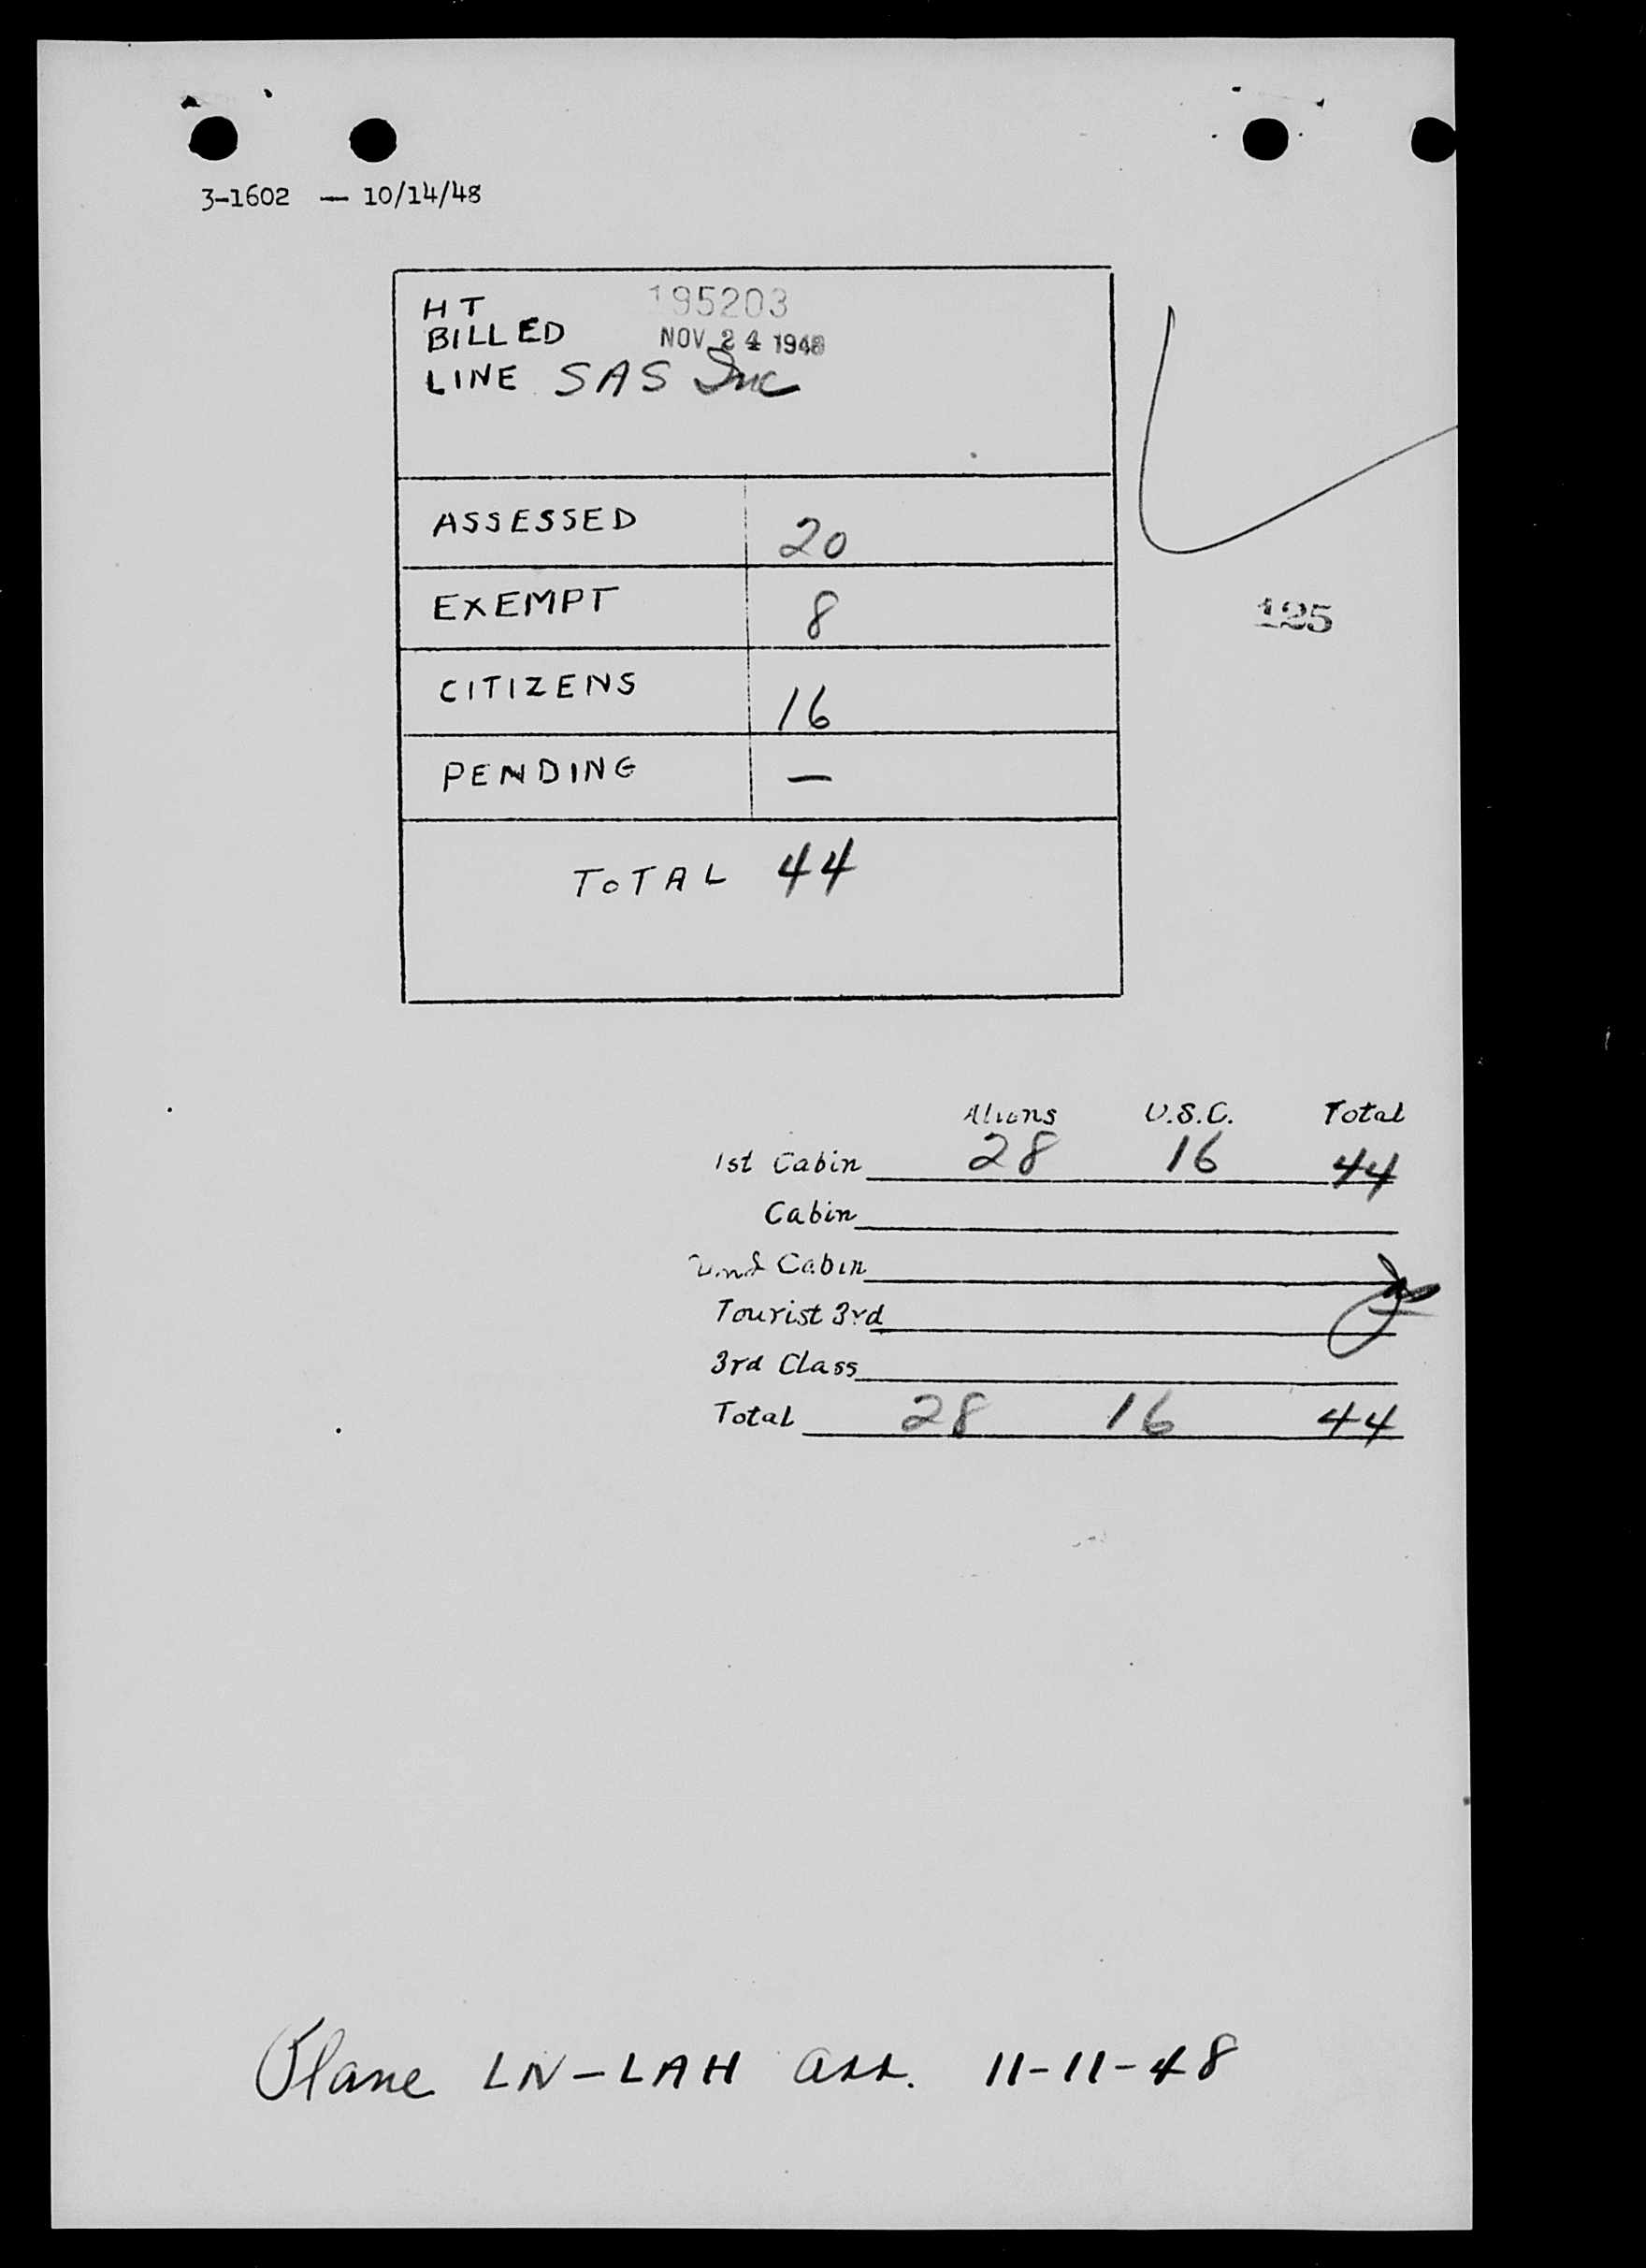 3-1602 — 10/14/48
HT 195203
BILLED NOV 24 1948
LINE SAS Inc
ASSESSED 20
EXEMPT 8
125
CITIZENS 16
PENDING —
TOTAL 44
Aliens U.S.C. Total
1st Cabin 28 16 44
Cabin
Cabin
Tourist 3rd
3rd Class
Total 28 16 44
Plane LN-LAH arr. 11-11-48